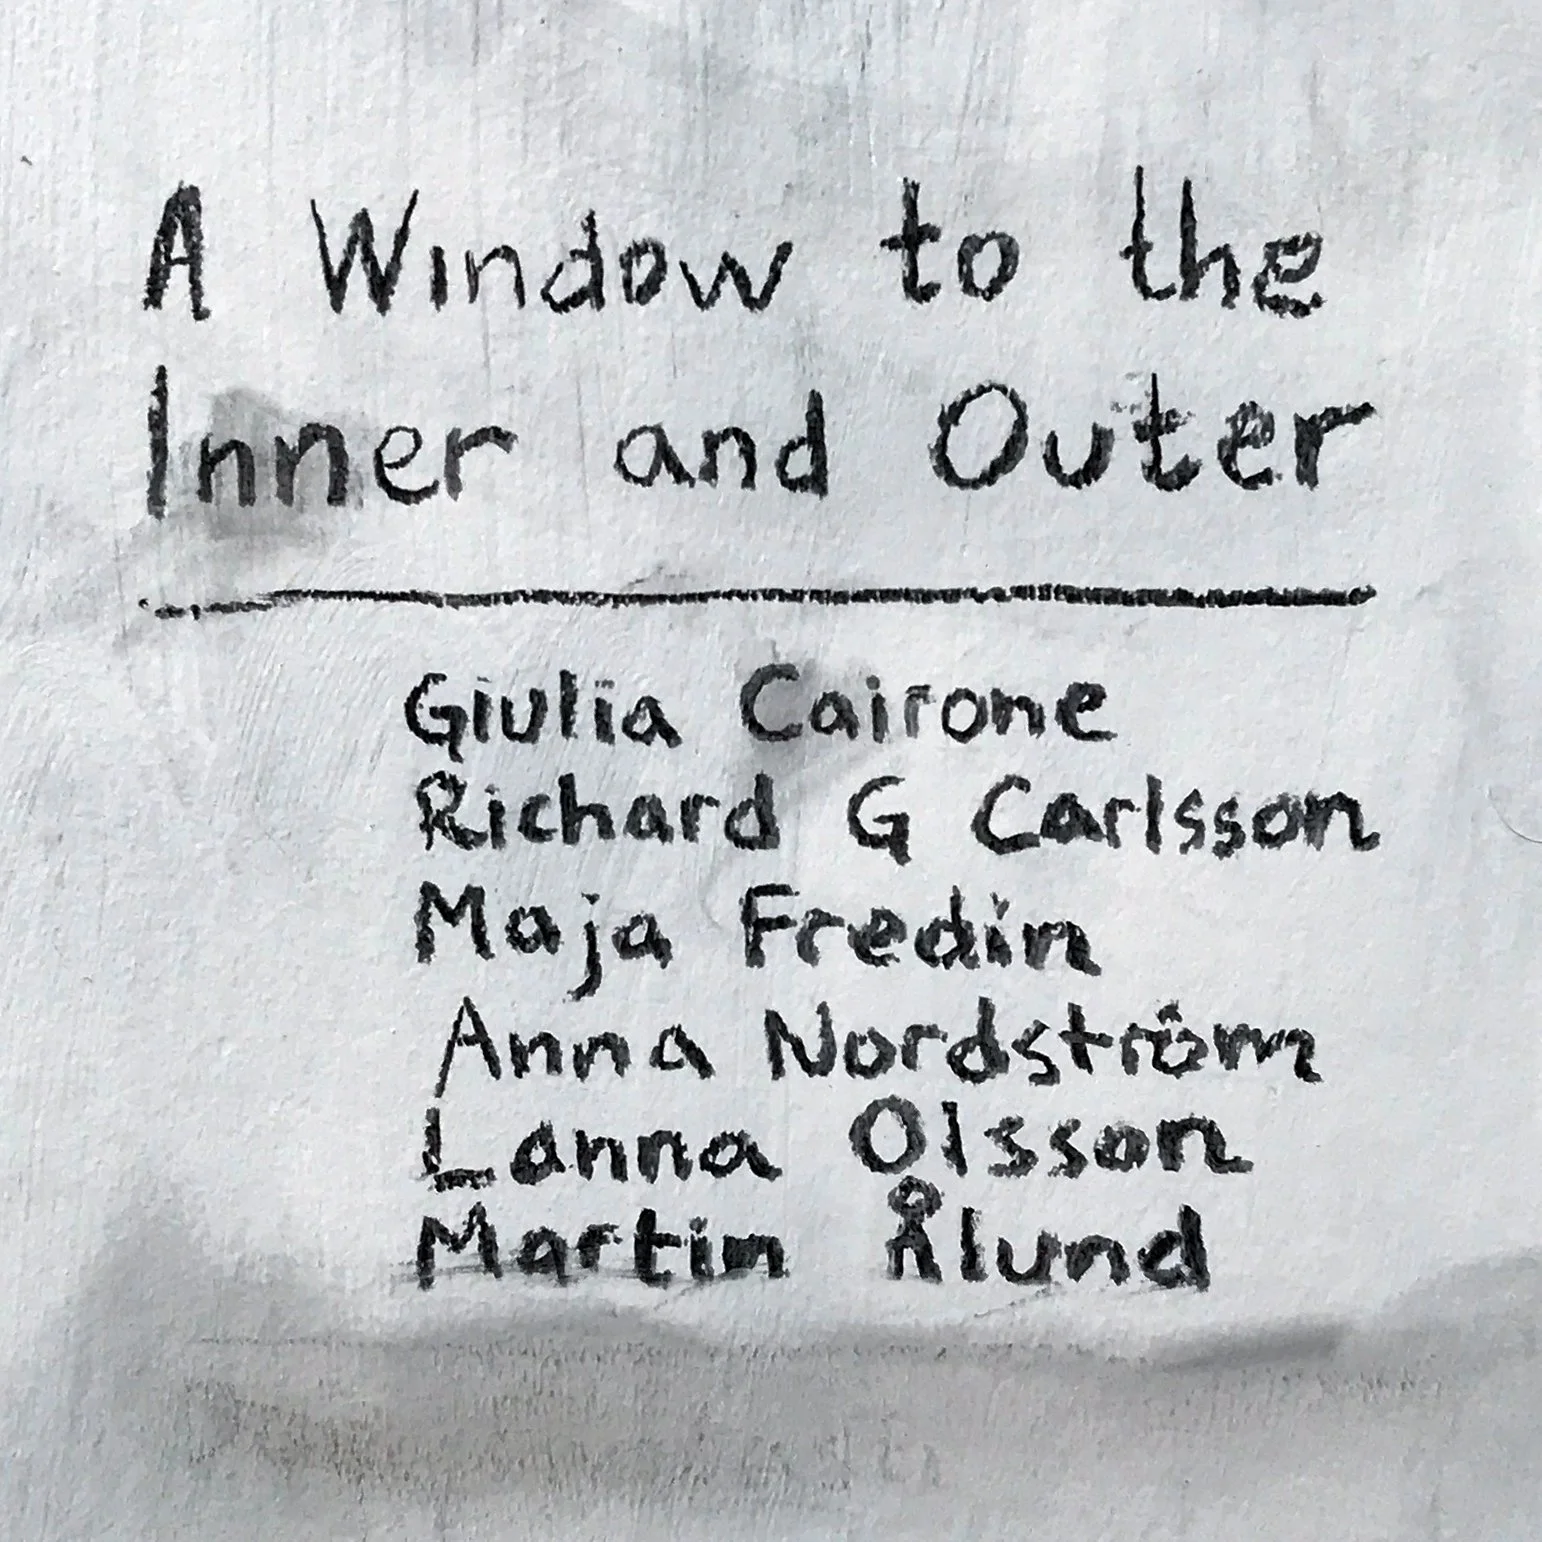 A Window to the
Inner and Outer
Giulia Cairone
Richard G Carlsson
Maja Fredin
Anna Nordström
Lanna Olsson
Martin Ålund